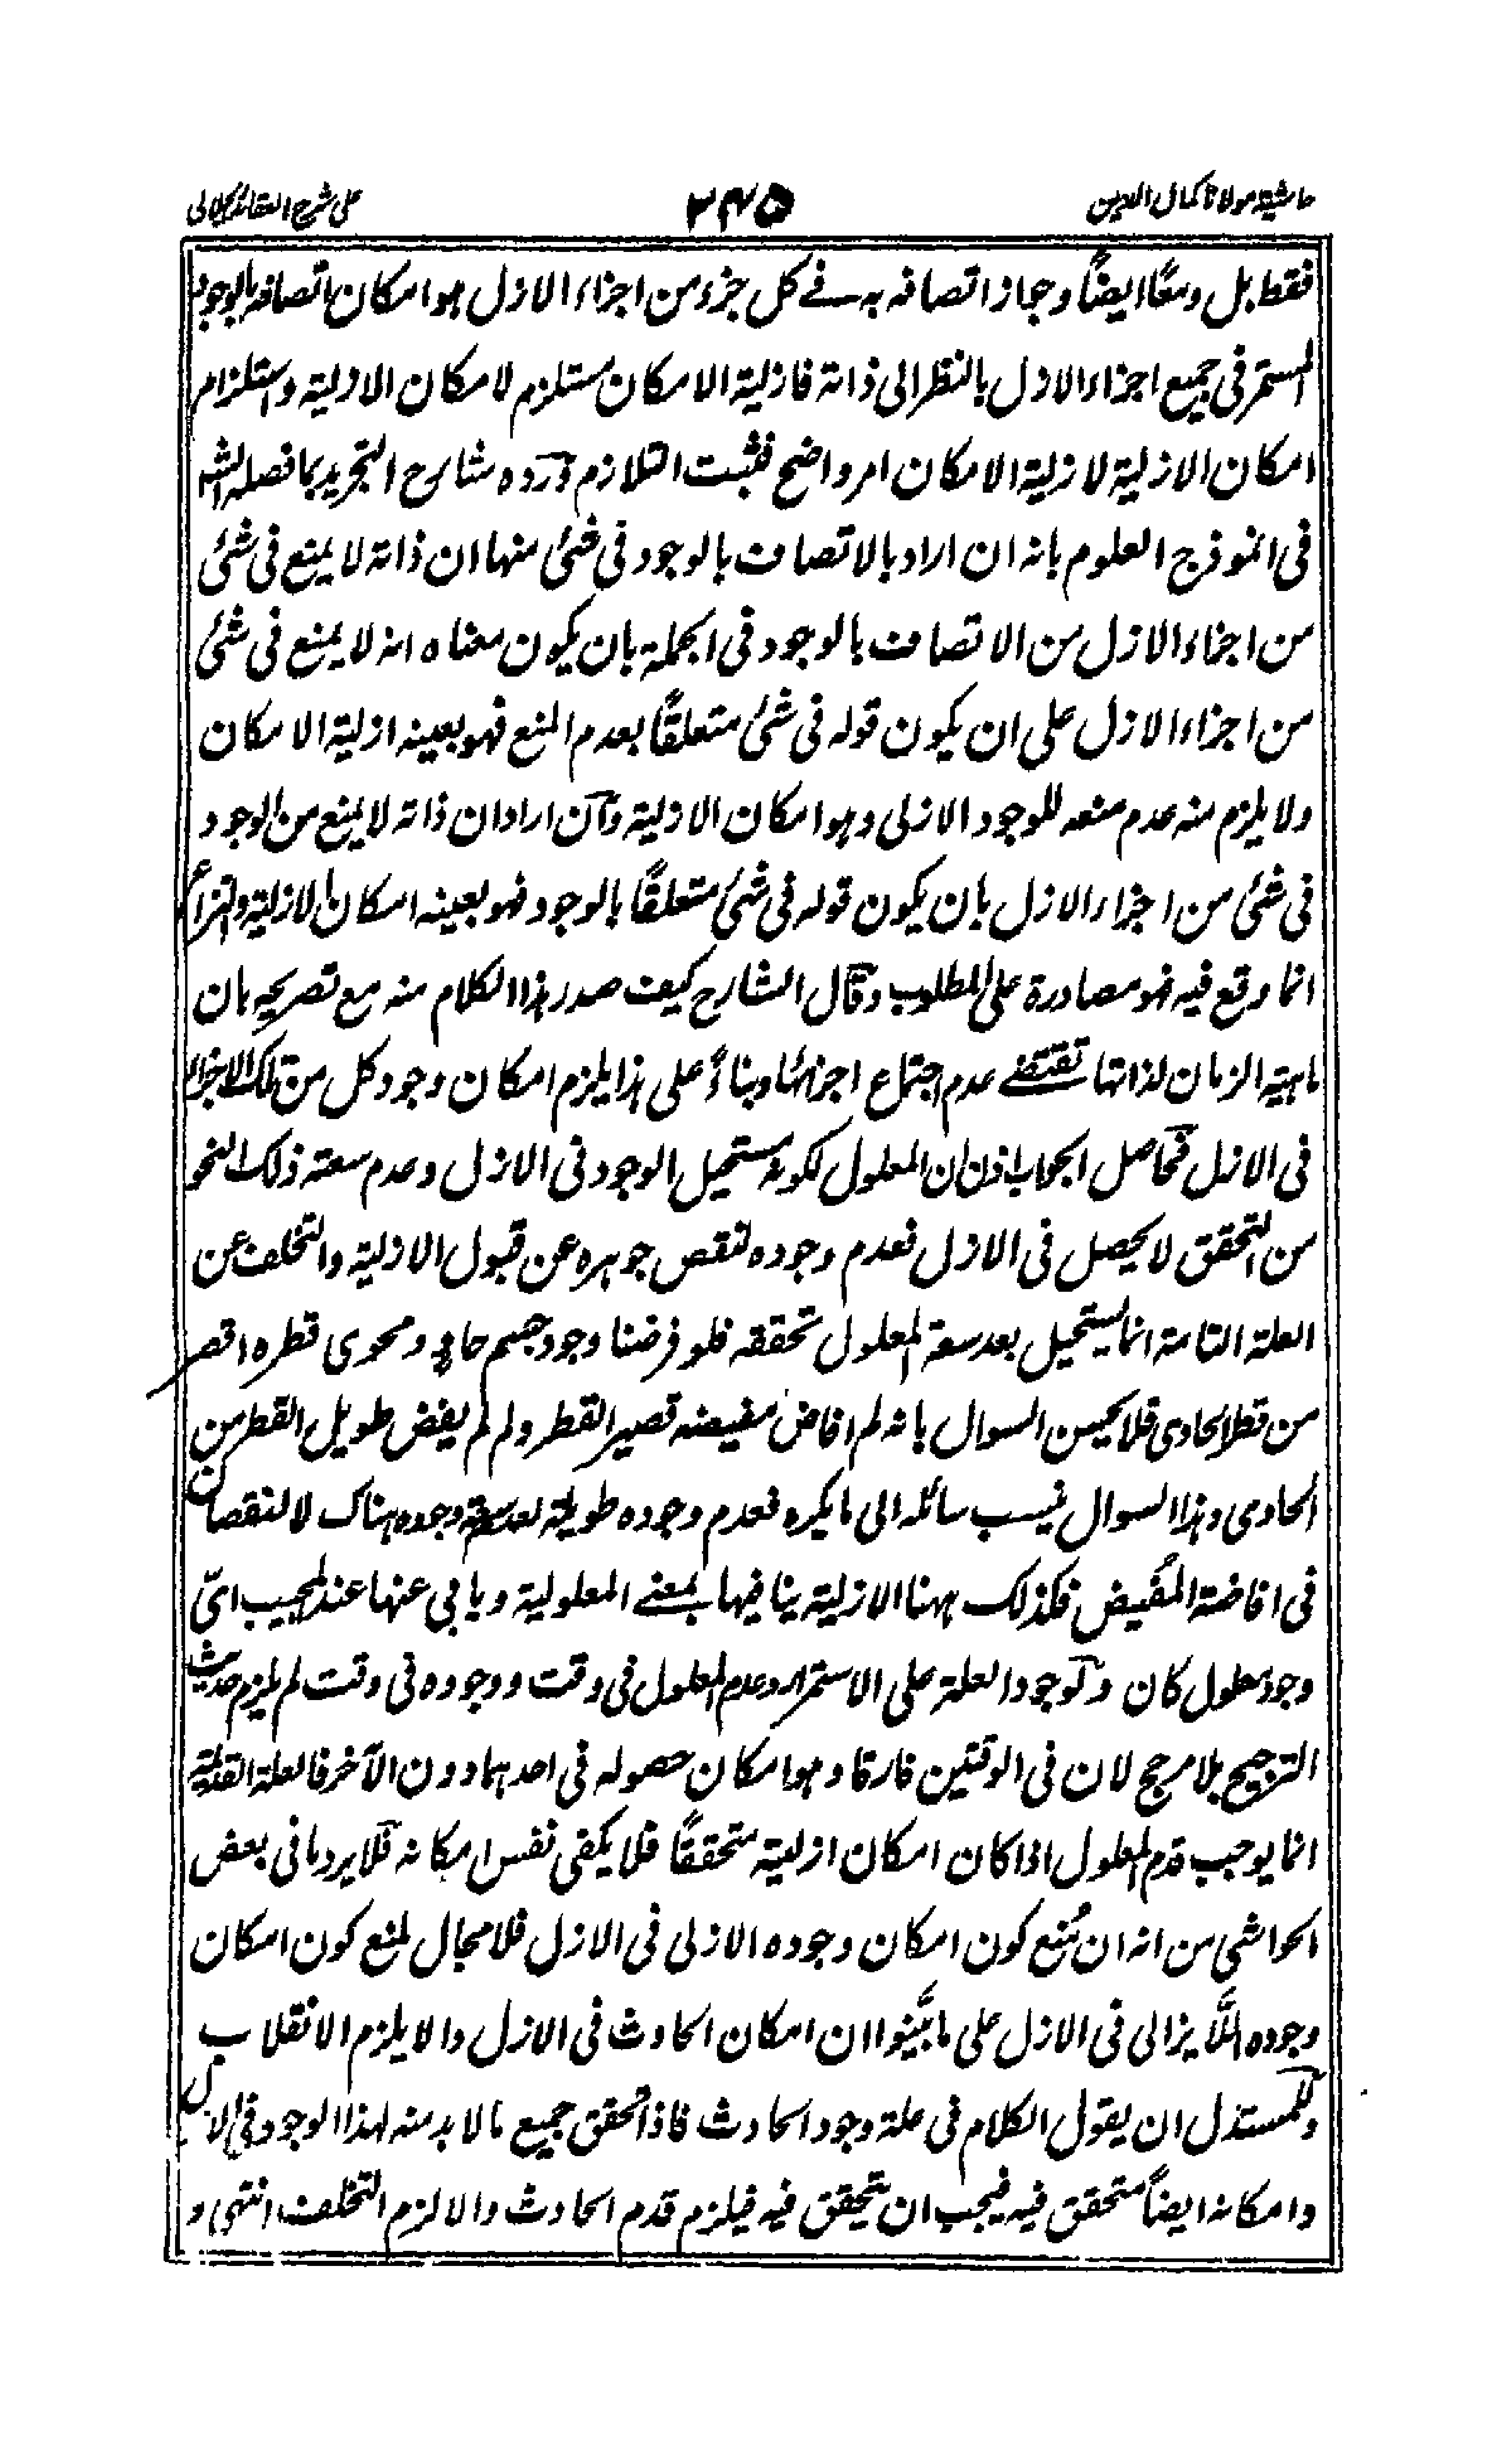 حاشية مولانا كمال الدين
٣٤٥
على شرح العقائد الجلالى
فقط بل ومعًا ايضًا وجاز اتصافه به فى كل جزء من اجزاء الازل هو امكان اتصافه بالوجود
المستمر فى جميع اجزاء الازل بالنظر الى ذاته فازلية الامكان مستلزم لامكان الازلية واستلزام
امكان الازلية لازلية الامكان امر واضح فثبت التلازم ورده شارح التجريد بما فصله الش
فى انموذج العلوم بانه ان اراد بالاتصاف بالوجود فى شئ منها ان ذاته لا يمنع فى شئ
من اجزاء الازل من الاتصاف بالوجود فى الجملة بان يكون معناه انه لا يمنع فى شئ
من اجزاء الازل على ان يكون قوله فى شئ متعلقًا بعدم المنع فهو بعينه ازلية الامكان
ولا يلزم منه عدم منعه للوجود الازلى وهو امكان الازلية وان اراد ان ذاته لا يمنع من الوجود
فى شئ من اجزاء الازل بان يكون قوله فى شئ متعلقًا بالوجود فهو بعينه امكان الازلية والنزاع
انما وقع فيه فهو مصادرة على المطلوب وقال الشارح كيف صدر هذا الكلام منه مع تصريحه بان
ماهية الزمان لذاتها تقتضے عدم اجتماع اجزائها وبناءً على هذا يلزم امكان وجود كل من تلك الاجزاء
فى الازل فحاصل الجواب اذن ان المعلول لكونه مستحيل الوجود فى الازل وعدم سعته ذلك النحو
من التحقق لا يحصل فى الازل فعدم وجوده لنقص جوهره عن قبول الازلية والتخلف عن
العلة التامة انما يستحيل بعد سعة المعلول تحققه فلو فرضنا وجود جسم حاوٍ ومحوى قطره اقصر
من قطر الحاوى فلا يحسن السوال بانه لم افاض مفيضه قصير القطر ولم لم يفض طويل القطر من
الحاوى وهذا السوال ينسب سائله الى ما يكره فعدم وجوده طويلة لعدم سعة وجوده هناك لا لنقصان
فى افاضة المُفيض فكذلك ههنا الازلية ينافيها بمعنے المعلولية ويابى عنها عند المجيب اىّ
وجود معلول كان ولوجود العلة على الاستمرار وعدم المعلول فى وقت ووجوده فى وقت لم يلزم حديث
الترجيح بلا مرجح لان فى الوقتين فارقا وهو امكان حصوله فى احدهما دون الآخر فالعلة القديمة
انما يوجب قدم المعلول اذا كان امكان ازليته متحققًا فلا يكفى نفس امكانه فلا يرد ما فى بعض
الحواشى من انه ان مُنع كون امكان وجوده الازلى فى الازل فلا مجال لمنع كون امكان
وجوده اللَّا يزالى فى الازل على ما بيَّنوا ان امكان الحادث فى الازل والا يلزم الانقلاب
وللمستدل ان يقول الكلام فى علة وجود الحادث فاذا تحقق جميع ما لا بد منه لهذا الوجود فى الازل
وامكانه ايضًا متحقق فيه فيجب ان يتحقق فيه فيلزم قدم الحادث والا لزم التخلف انتهى و